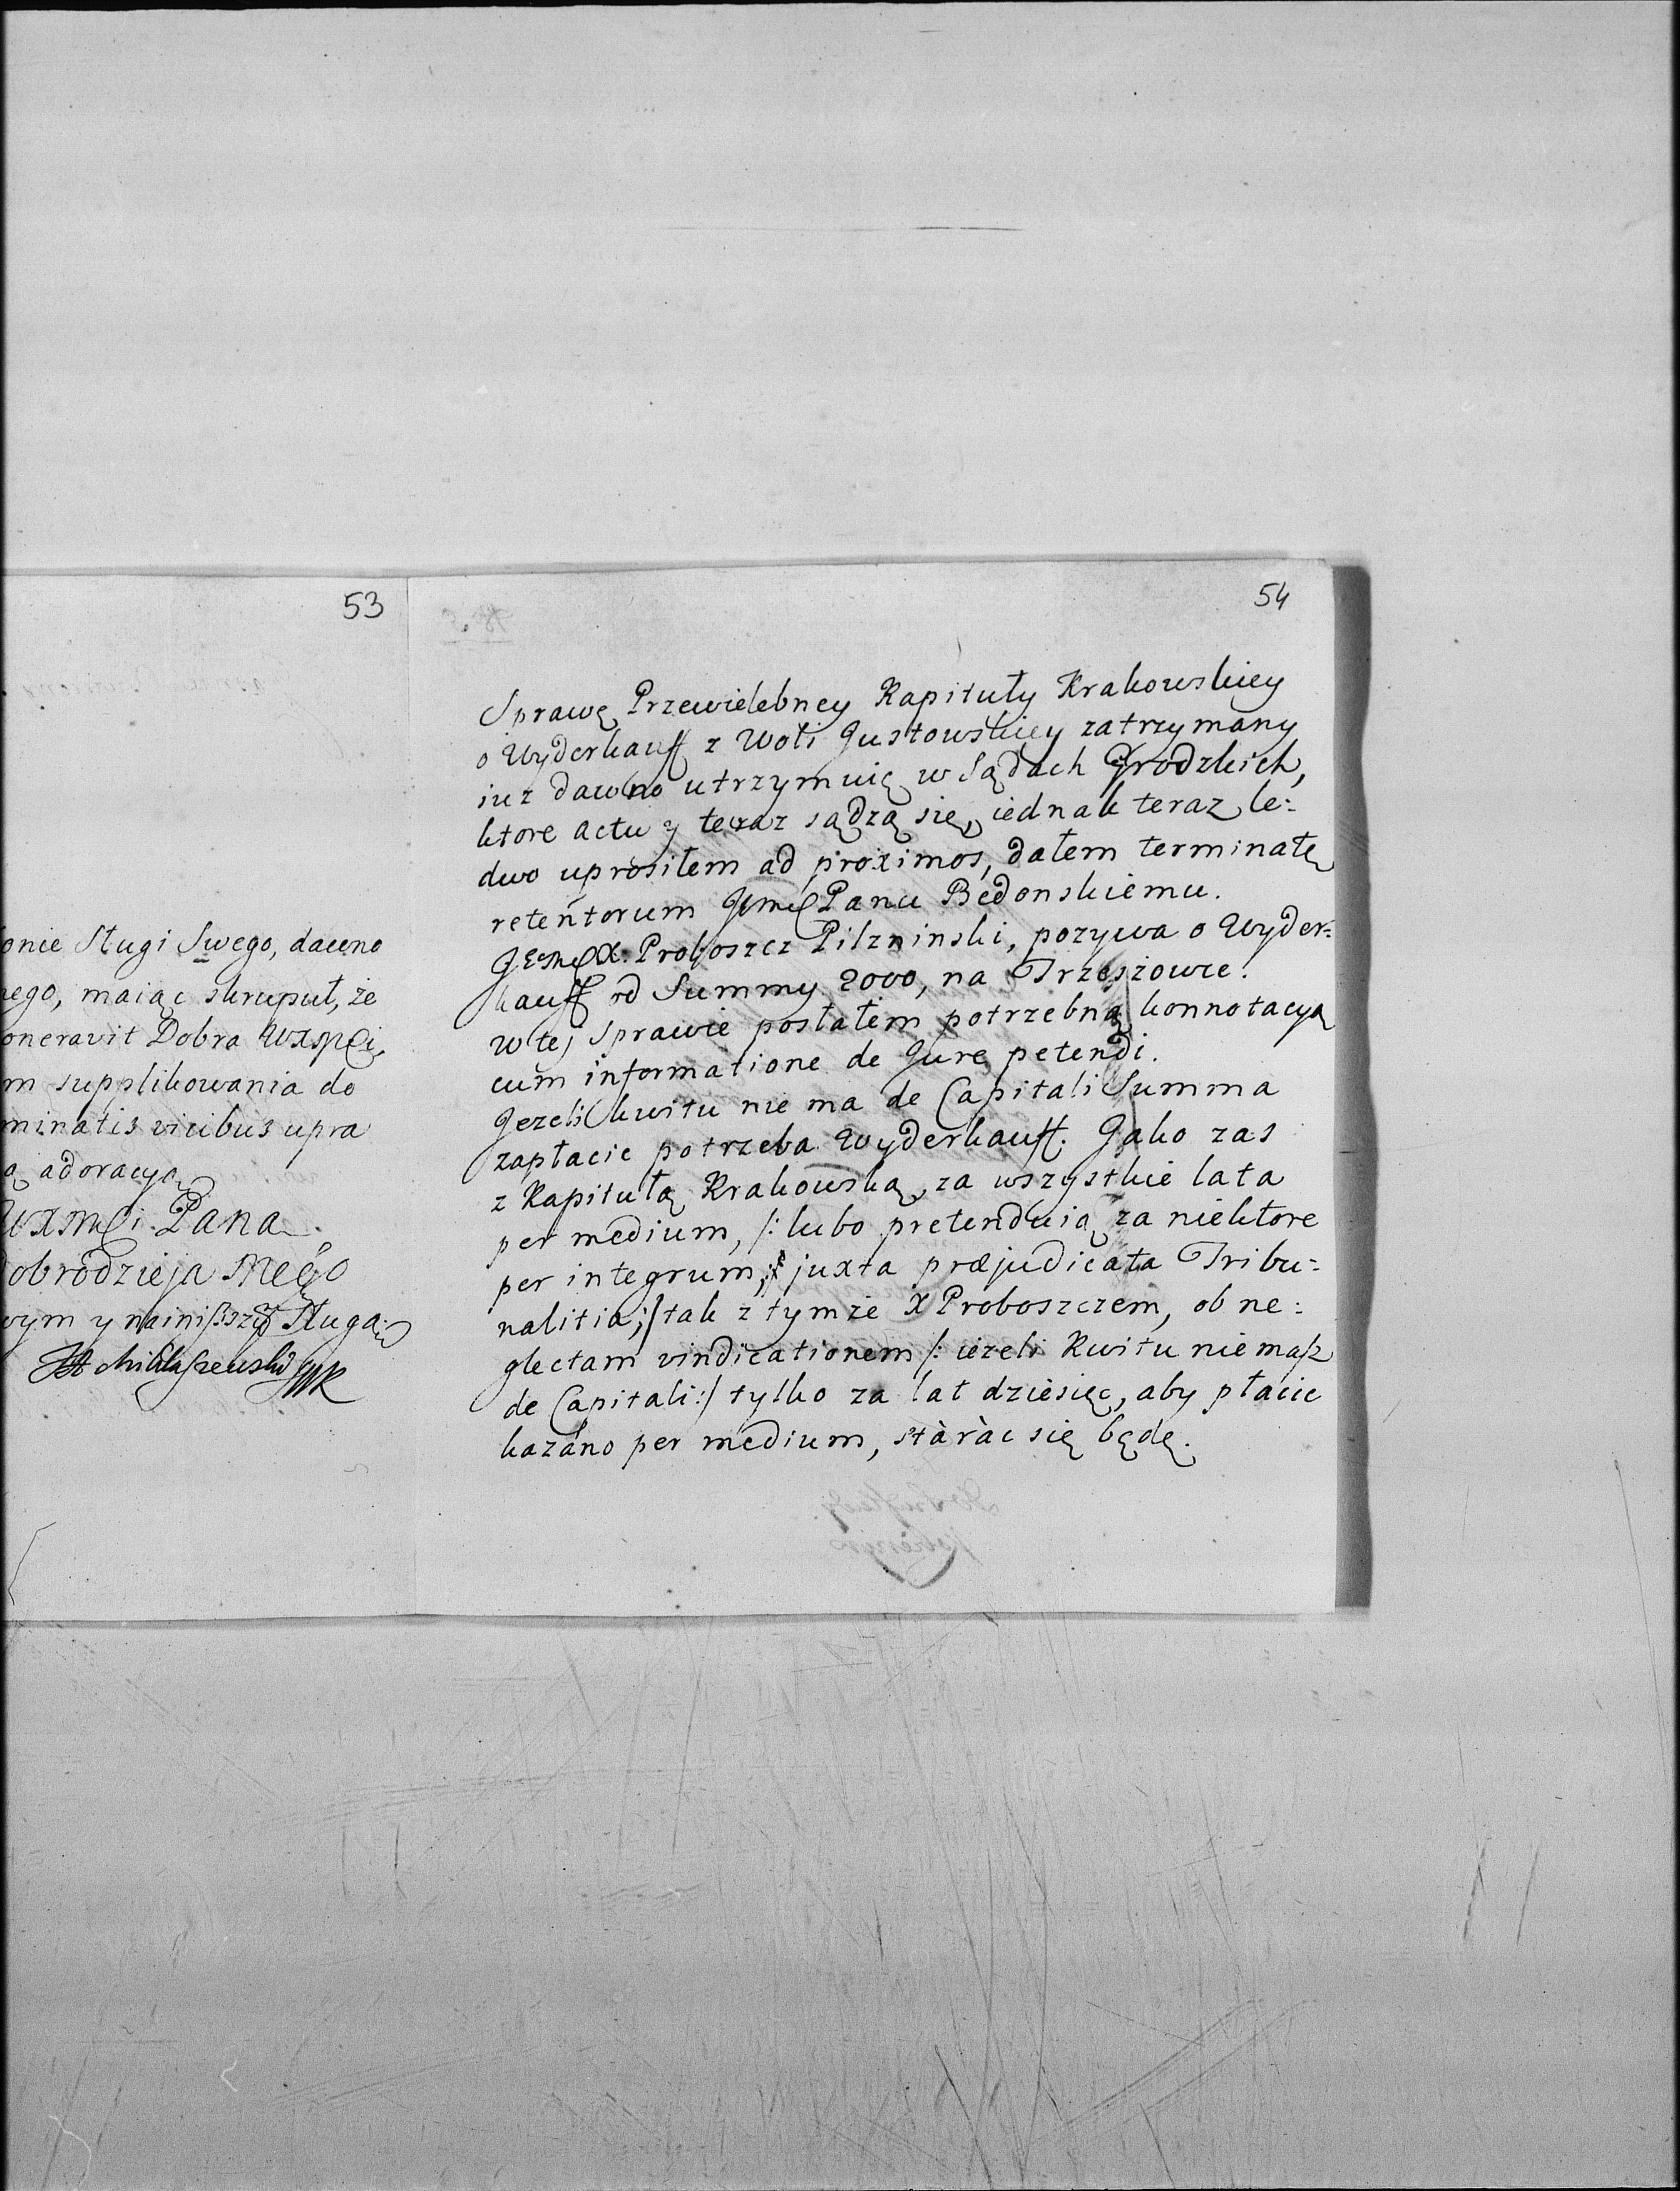 53
onie Sługi Swego, dawno
nego, maiąc skrupuł, że
oneravit Dobra WXMPCi,
m supplikowania do
minatis viribus upra
ą adoracyą
WXMCi. Pana
obrodzieja Mego
wym y nainißszym Sługą
54
Sprawę Przewielebney Kapituły Krakowskiey
o Wyderkauff z Woli Justowskiey zatrzymany
iuz dawno utrzymuię w Sądach Grodzkich,
ktore actu y teraz sądzą się, iednak teraz le:
dwo uprosiłem ad proximos, dałem terminatę
retentorum Panu Bedonskiemu.
X. Proboszcz Pilzninski, pozywa o Wyder:
kauff od Summy 2000, na Trzesżowie.
W tej Sprawie posłałem potrzebną konnotacyą
cum informatione de Jure petendi.
Jezeli kwitu nie ma de Capitali Summa
zapłacic potrzeba Wyderkauff. Jako zas
z Kapitułą Krakowską, za wszystkie lata
per medium, /: lubo pretenduią za niektore
per integrum, juxta præjudicata Tribu:
nalitia, :/ tak z tymże X Proboszczem, ob ne:
glectam vindicationem /: ieżeli Kwitu nie maß
de Capitali :/ tylko za lat dziesięc, aby płacic
kazano per medium, stàràc się będę.